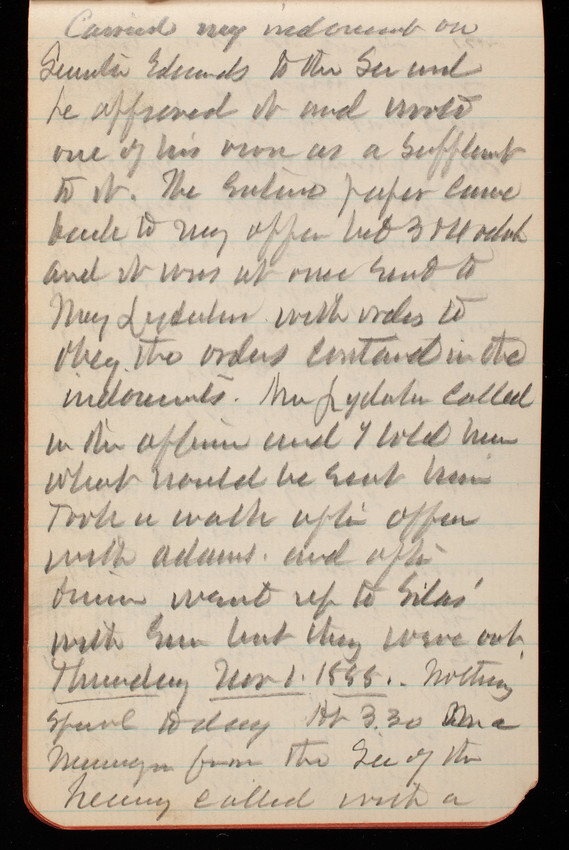 Carried my indorsement on
Senator Edmunds to the Sec and
he approved it and wrote
one of his own as a supplement
to it. The entire paper came
back to my office 3 Oclock
and it was at once sent to
Maj Lydecker with orders to
obey the orders contained in the
indorsements. Lydecker called
in the afternoon and I told him
what would be sent him
Took a walk after office
with Adams. and after
dinner went up to Silas'
with Em but they were out.
Thursday Nov 1. 1888.. Nothing
special today At 3.30 a
Messenger from the Sec of the
called with a